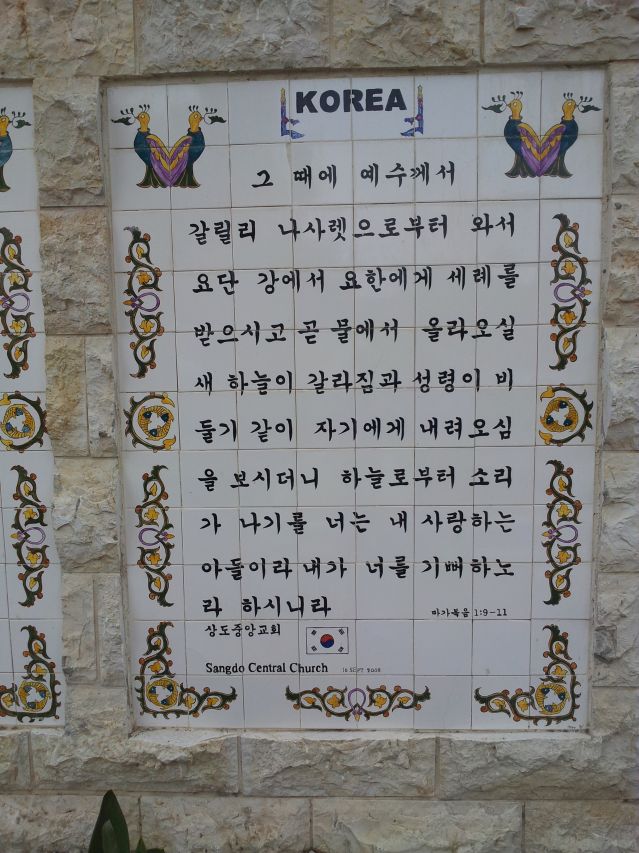 KOREA
그 때에 예수께서
갈릴리 나사렛으로부터 와서
요단 강에서 요한에게 세례를
받으시고 곧 물에서 올라오실
새 하늘이 갈라짐과 성령이 비
둘기 같이 자기에게 내려오심
을 보시더니 하늘로부터 소리
가 나기를 너는 내 사랑하는
아들이라 내가 너를 기뻐하노
라 하시니라
마가복음 1:9-11
상도중앙교회
Sangdo Central Church
10 SEPT 2008